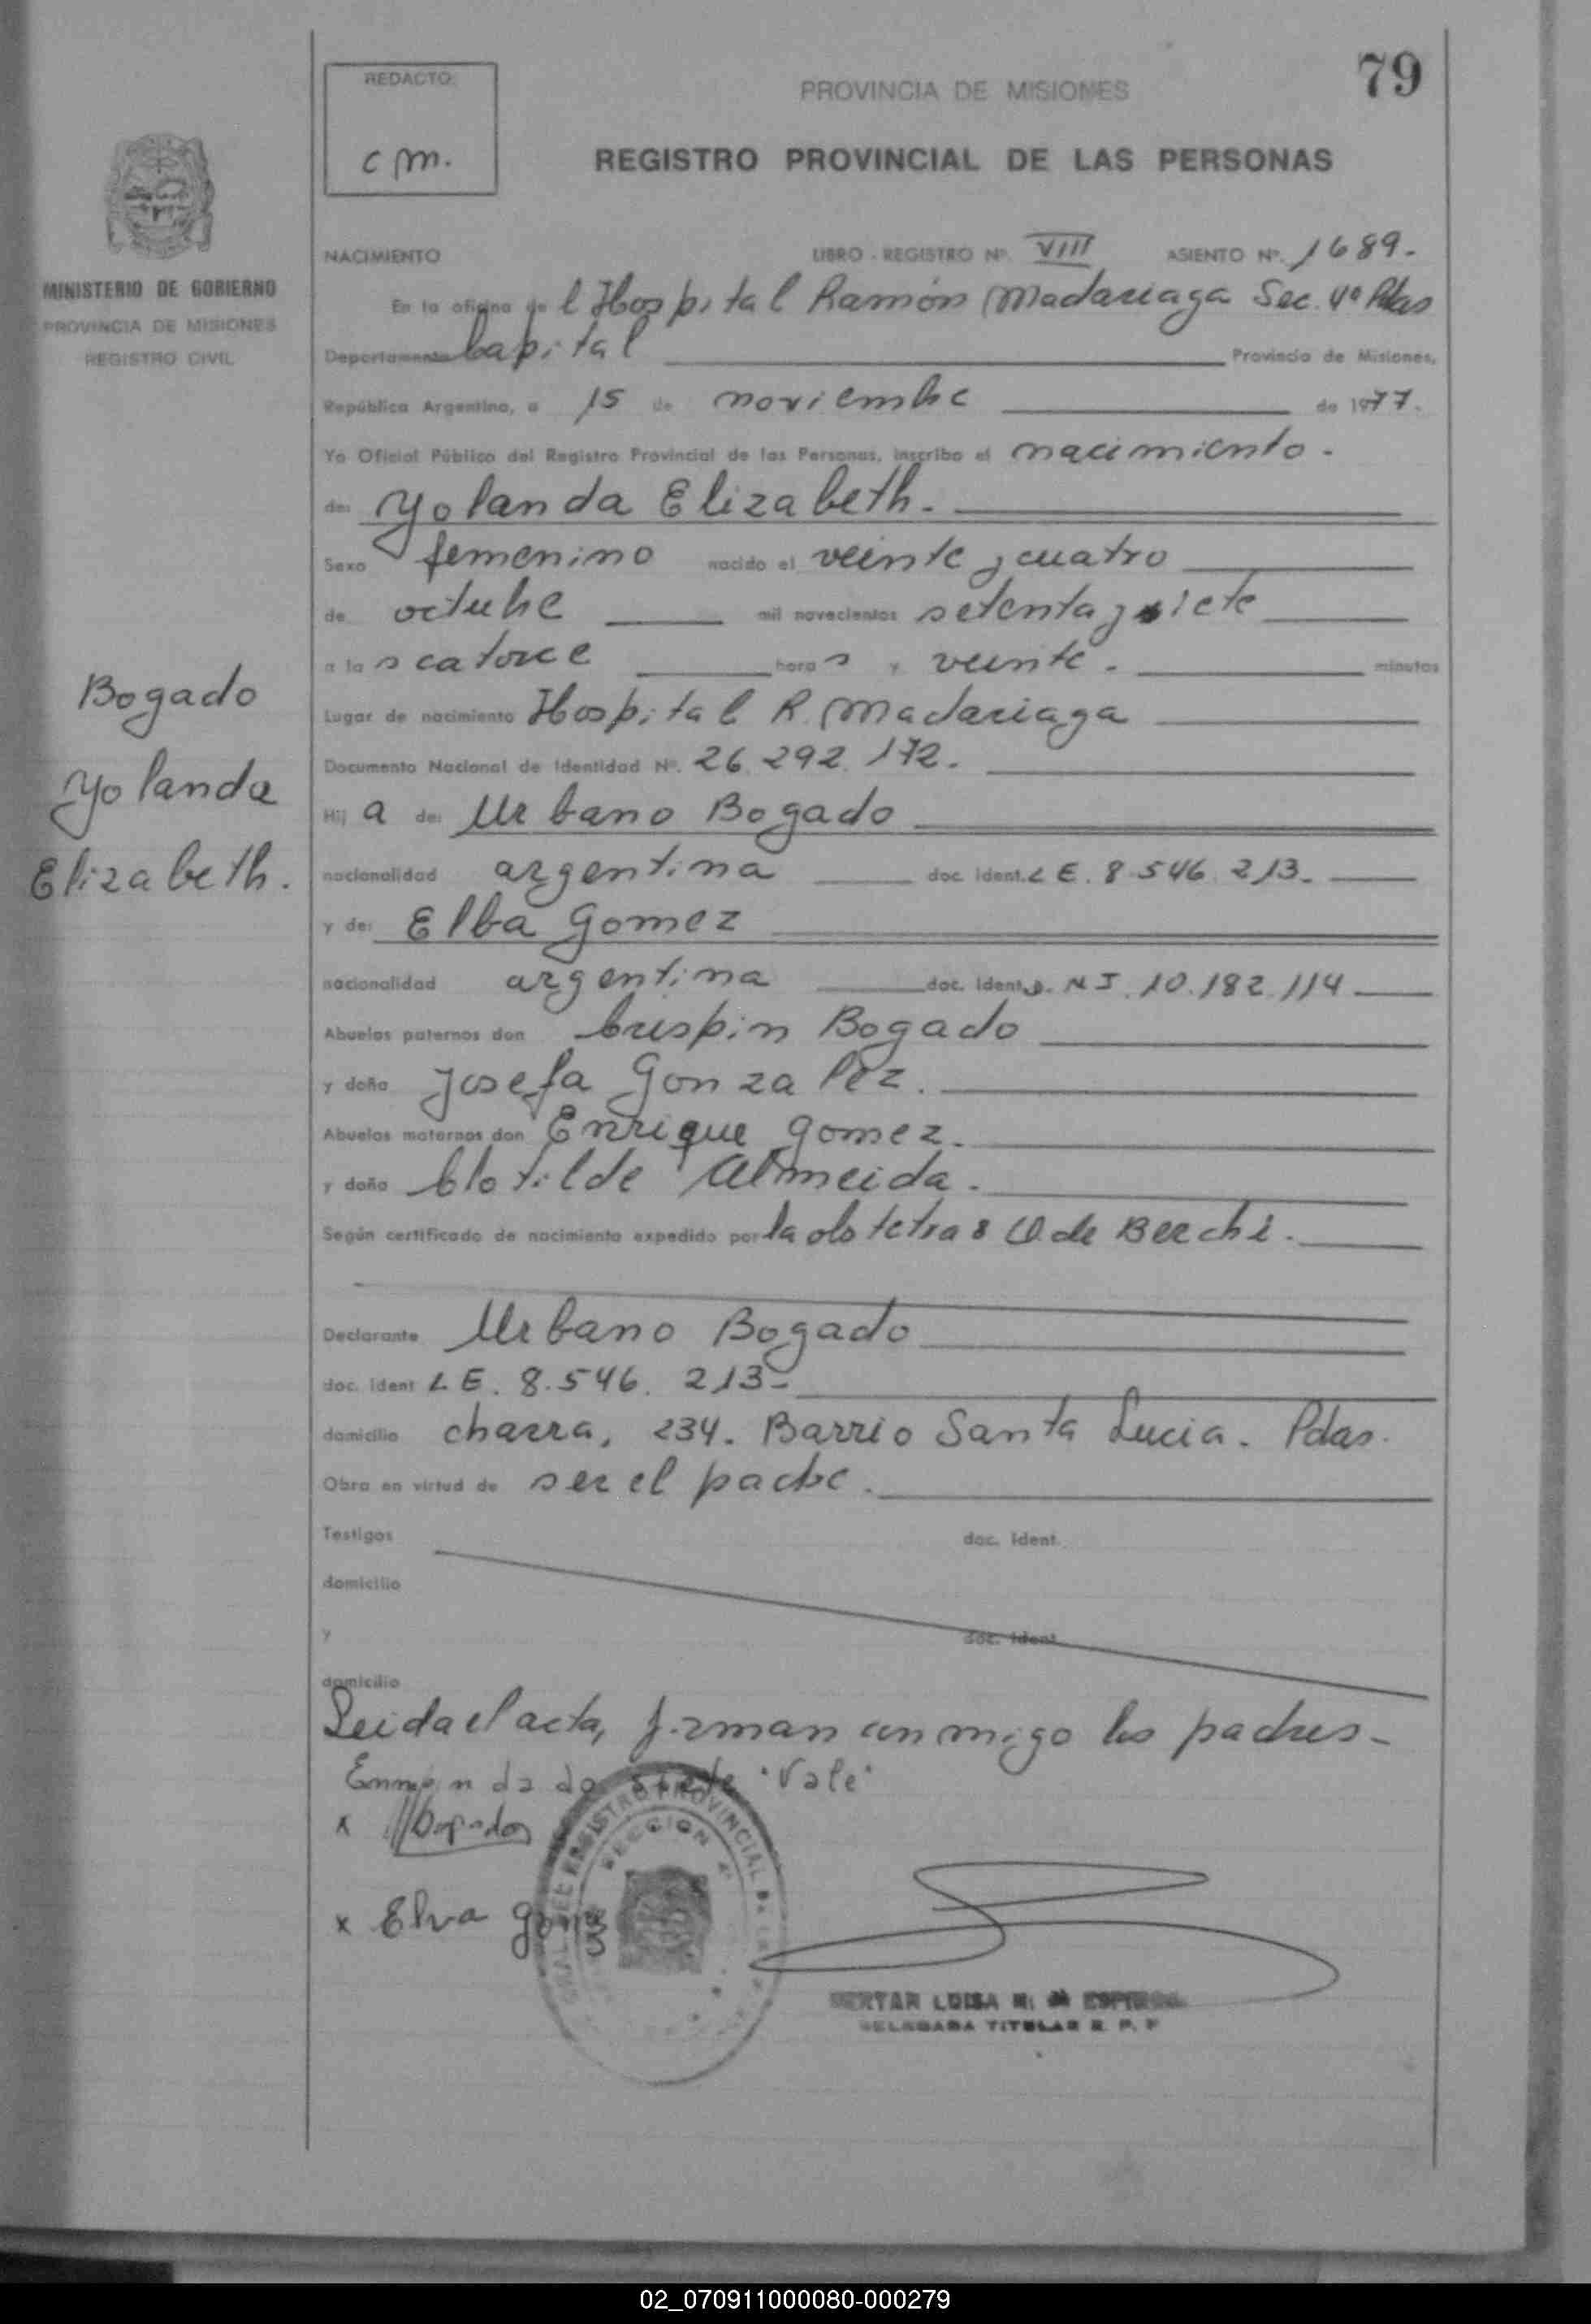 79
REDACTO:
c m.
PROVINCIA DE MISIONES
REGISTRO PROVINCIAL DE LAS PERSONAS
MINISTERIO DE GOBIERNO
PROVINCIA DE MISIONES
REGISTRO CIVIL
NACIMIENTO LIBRO - REGISTRO Nº. VIII ASIENTO Nº. 1689.
En la oficina de l Hospital Ramón Madariaga Sec. 4ª Pdas
Departamento Capital Provincia de Misiones,
República Argentina, a 15 de noviembre de 1977.
Yo Oficial Público del Registro Provincial de las Personas, inscribo el nacimiento.
de: Yolanda Elizabeth.
Sexo femenino nacido el veinte y cuatro
de octubre mil novecientos setenta y siete
a las catorce horas y veinte. minutos
Bogado
Yolanda
Elizabeth.
Lugar de nacimiento Hospital R. Madariaga
Documento Nacional de Identidad Nº. 26.292.172.
Hij a de: Urbano Bogado
nacionalidad argentina doc. Ident. L E. 8.546.213.
y de: Elba Gomez
nacionalidad argentina doc. Ident. D. N I. 10.182.114
Abuelos paternos don Crispin Bogado
y doña Josefa Gonzalez.
Abuelos maternos don Enrique Gomez.
y doña Clotilde Almeida.
Según certificado de nacimiento expedido por la obstetra de
Declarante Urbano Bogado
doc. Ident L E. 8.546.213-
domicilio chacra, 234. Barrio Santa Lucia. Pdas.
Obra en virtud de ser el padre.
Testigos doc. Ident.
domicilio
y doc. Ident.
domicilio
Leida el acta, firman conmigo los padres-
Enmendado siete "Vale"
x
x Elva Gomez
REGISTRO PROVINCIAL DE
SECCION 4ª
LUISA
DELEGADA TITULAR R. P. P
02_070911000080-000279